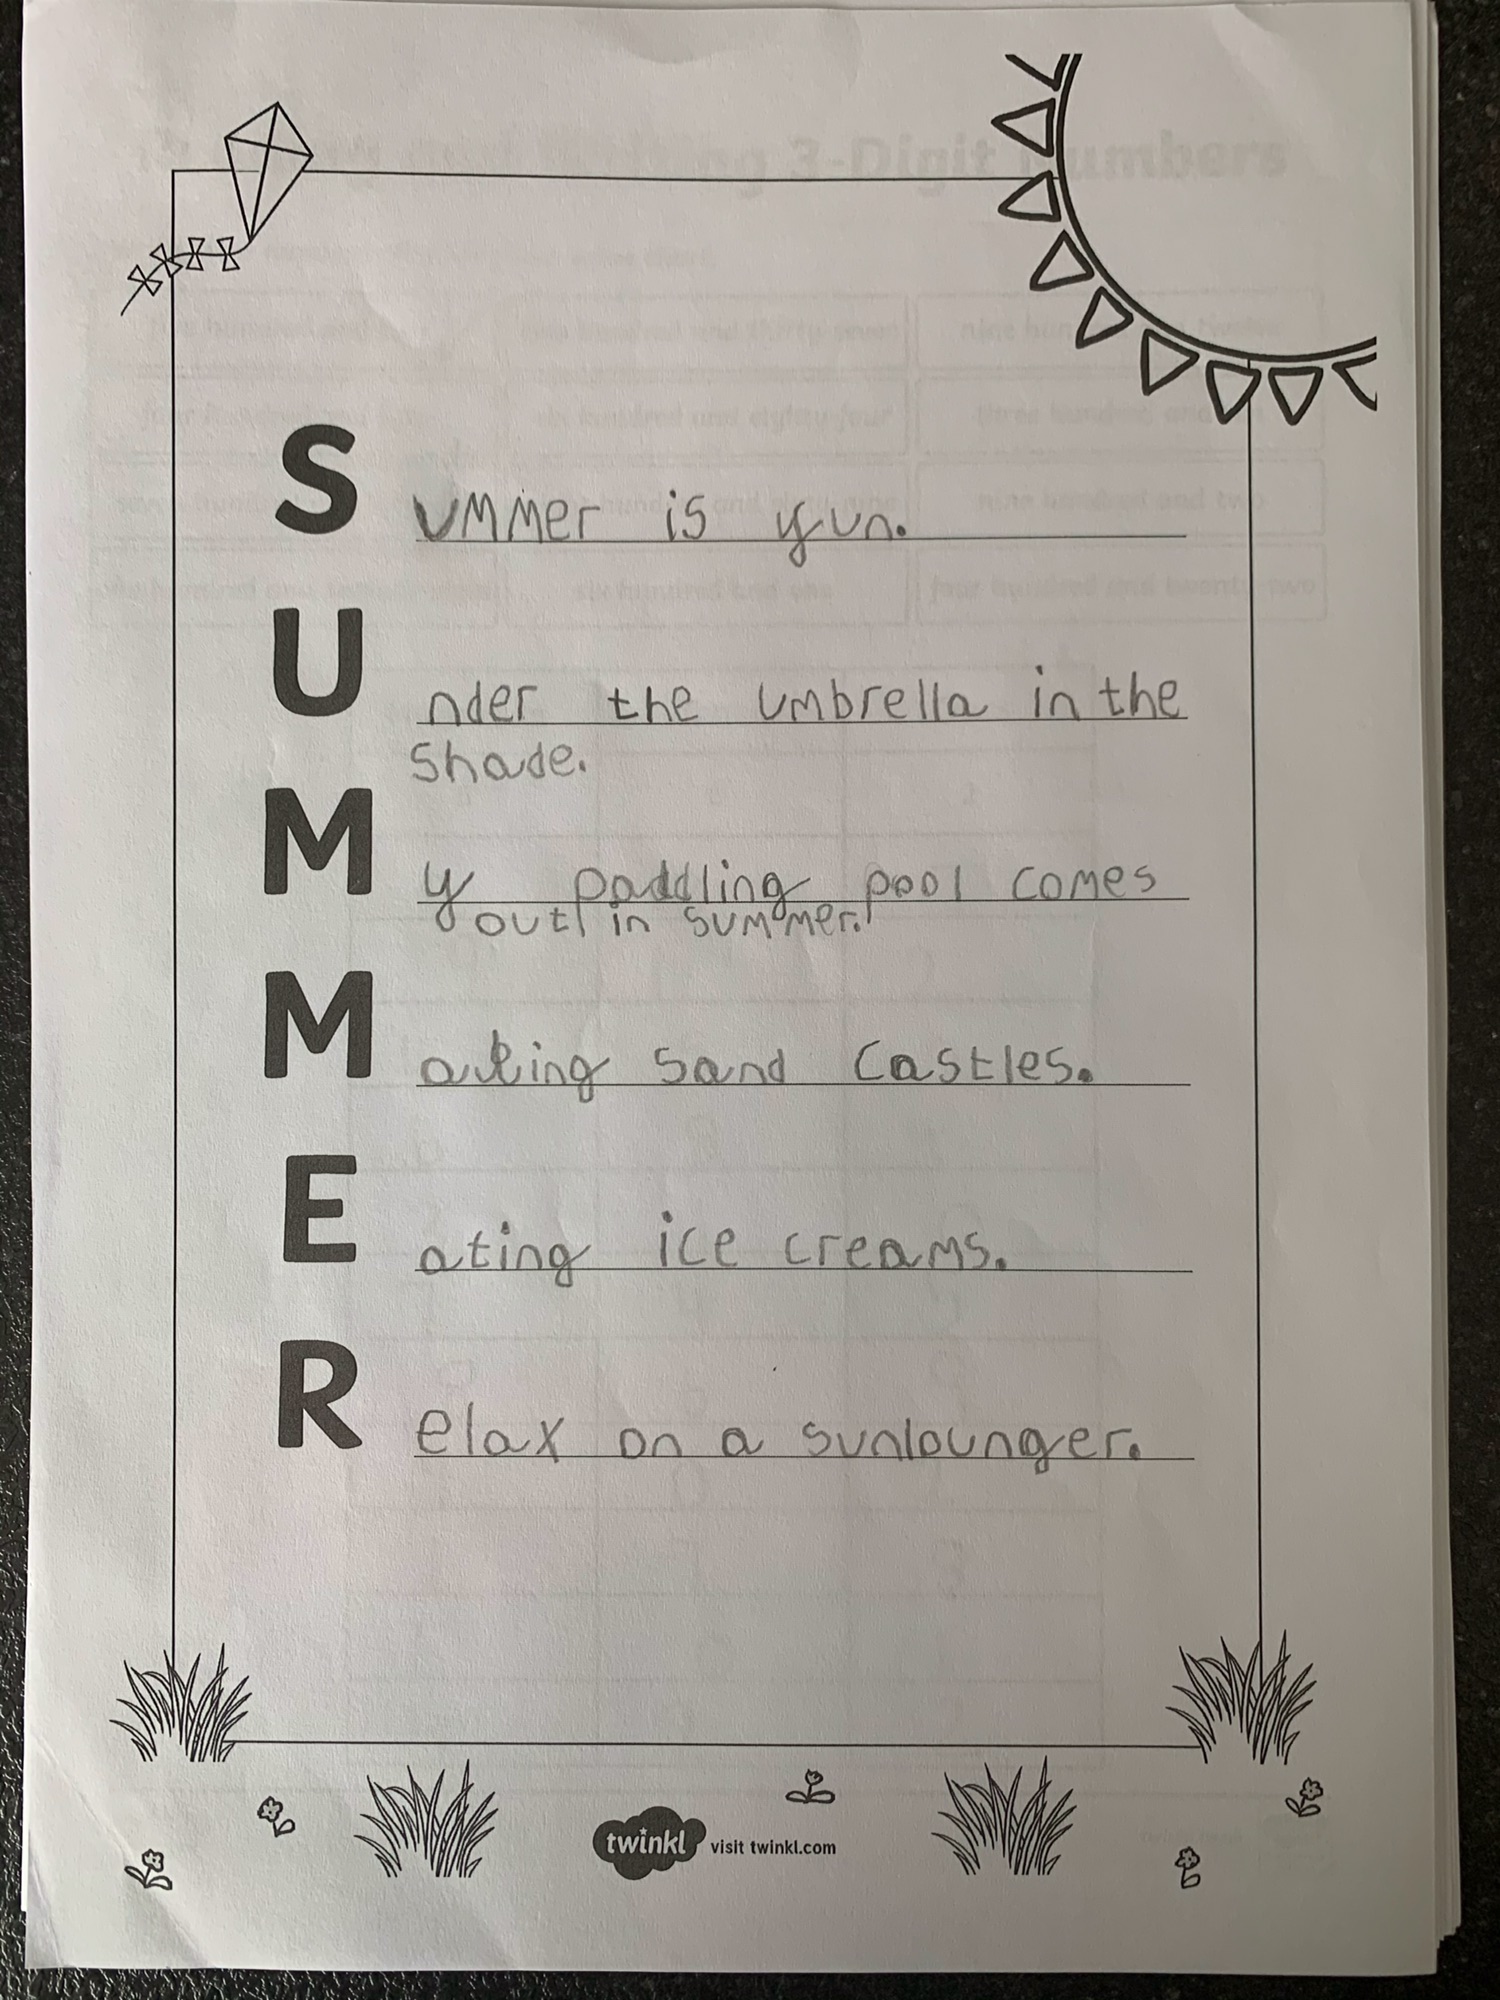 Summer is yun.
Under the umbrella in the
shade.
My paddling pool comes
out in summer.
Making sand castles.
Eating ice creams.
Relax on a sunlounger.
twinkl visit twinkl.com